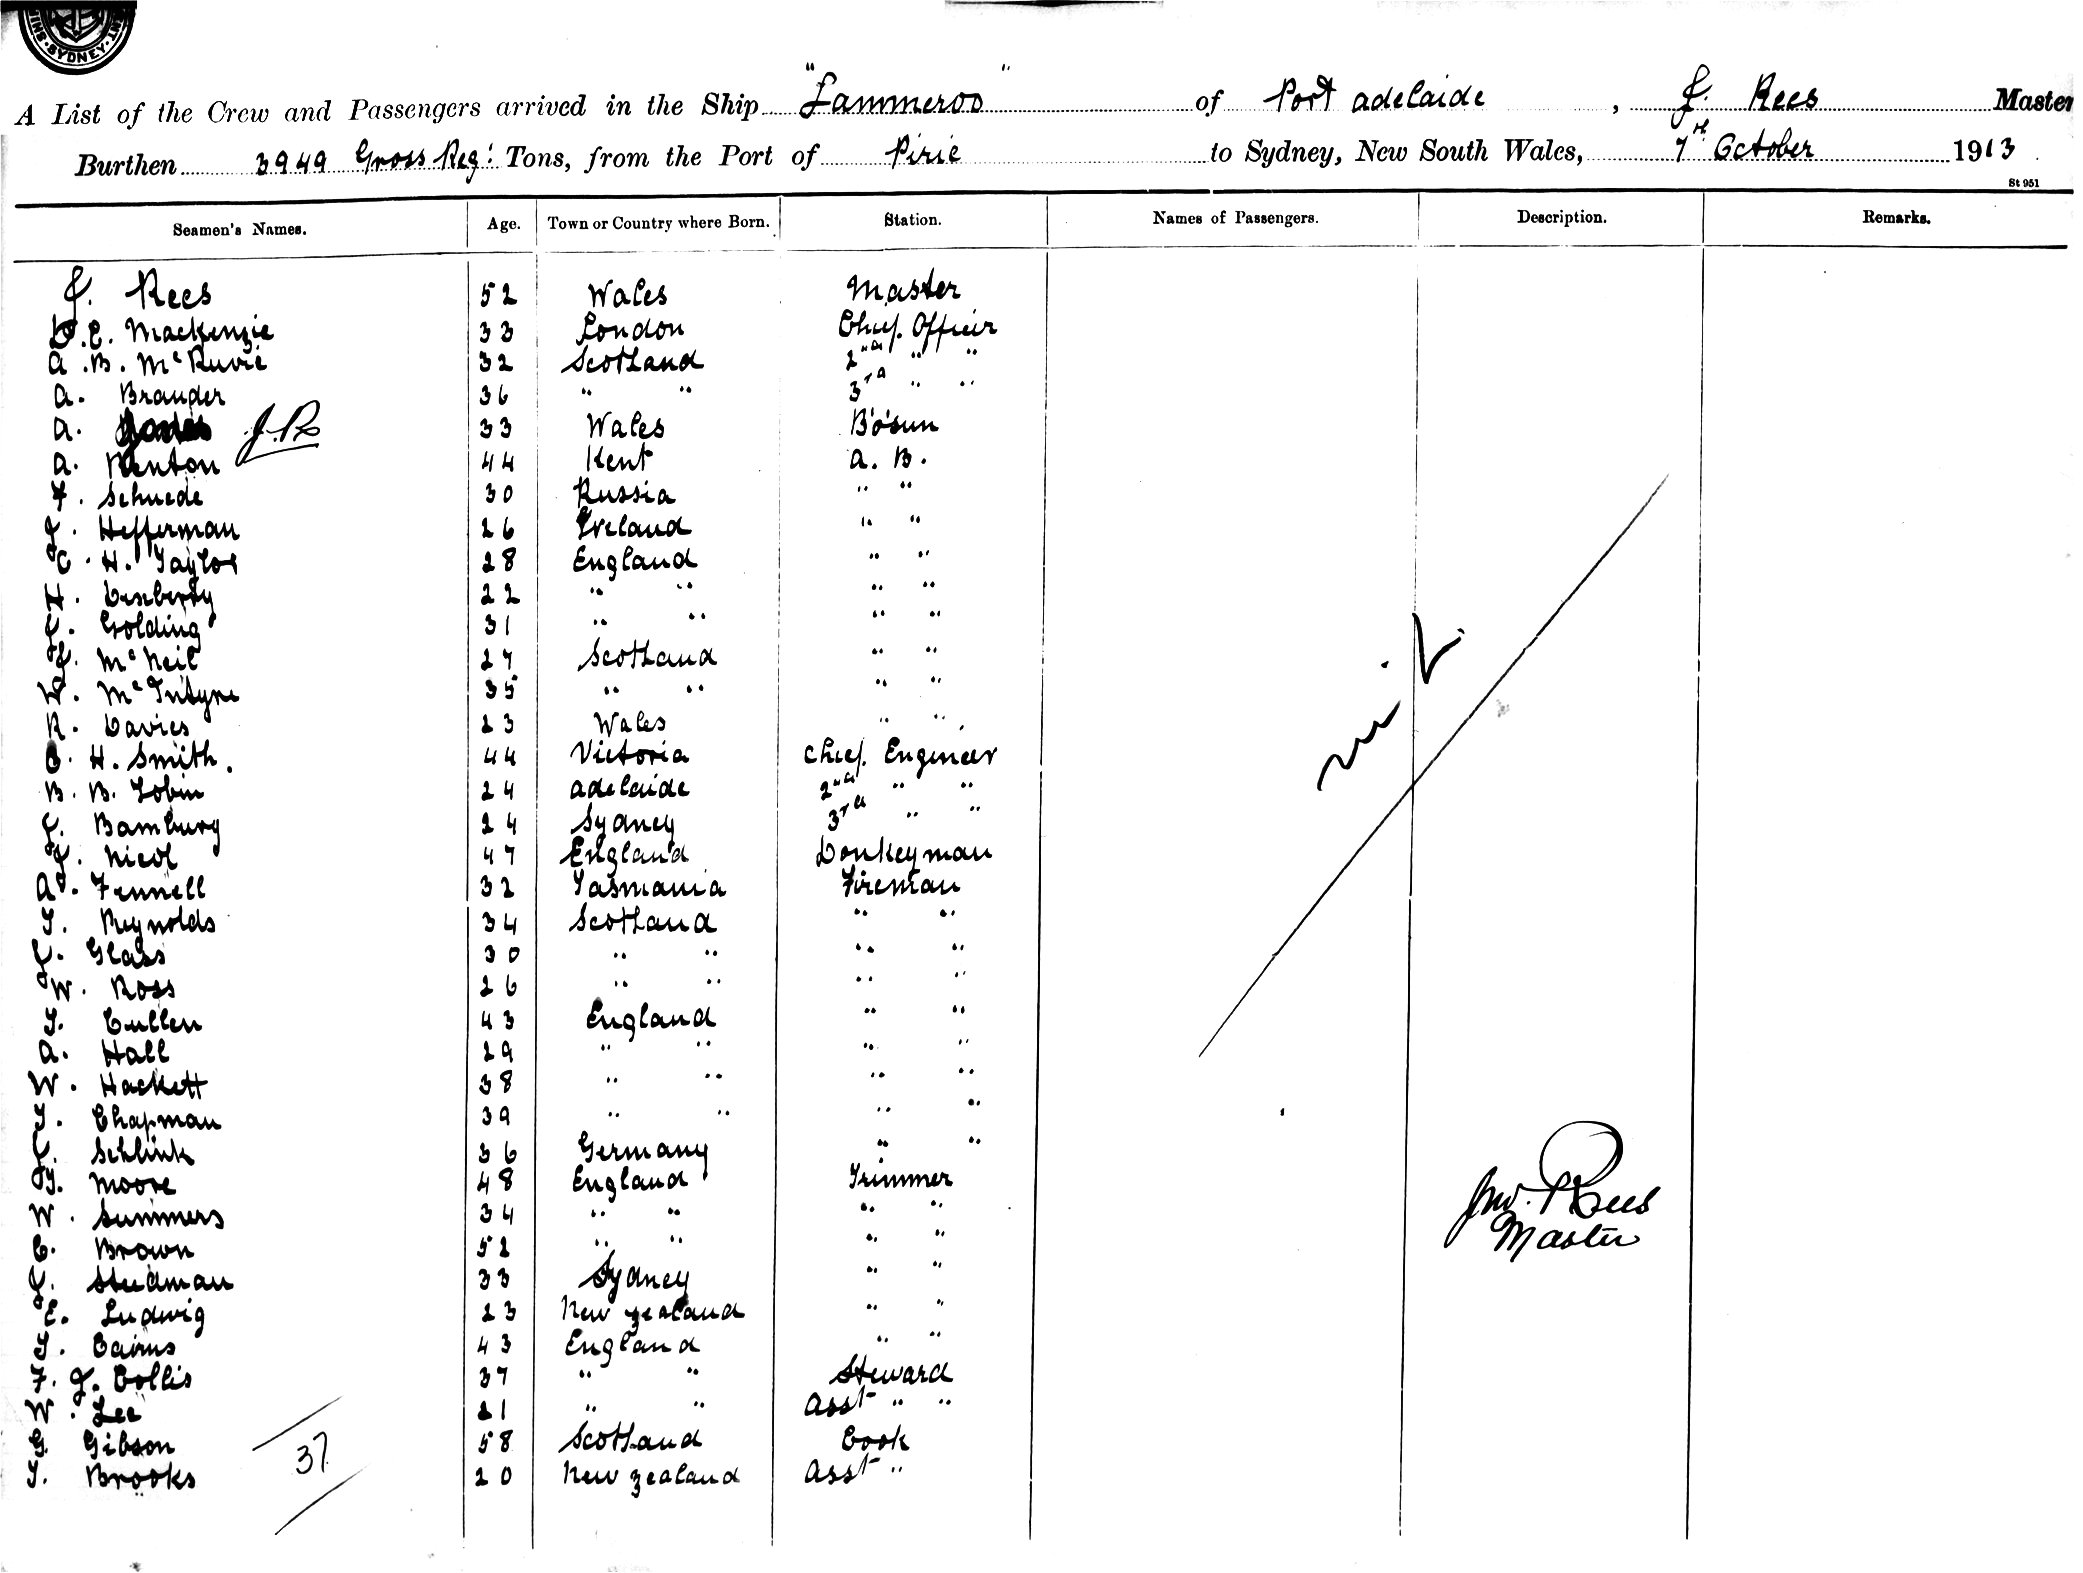 SYDNEY
A List of the Crew and Passengers arrived in the Ship "Lammeroo" of Port Adelaide, J. Rees Master
Burthen 3949 Gross Reg: Tons, from the Port of Pirie to Sydney, New South Wales, 7th October 1913
St 951
Seamen's Names. Age. Town or Country where Born. Station. Names of Passengers. Description. Remarks.
J. Rees 52 Wales Master
E. Mackenzie 33 London Chief Officer
A. B. McRuvie 32 Scotland 2nd " "
A. Brander 36 " " 3rd " "
A. J.R. 33 Wales Bo'sun
A. Renton 44 Kent A. B.
F. Schuede 30 Russia " "
J. Hefferman 26 Ireland " "
C. H. Taylor 28 England " "
H. 22 " " " "
J. Golding 31 " " " "
J. McNeil 27 Scotland " "
W. McIntyre 35 " " " "
R. Davies 23 Wales " "
C. H. Smith. 44 Victoria Chief Engineer
B. B. Tobin 24 Adelaide 2nd " "
J. Bamburg 24 Sydney 3rd " "
J. Nicol 47 England Donkeyman
A. Fennell 32 Tasmania Fireman
T. Reynolds 34 Scotland " "
J. Glass 30 " " " "
W. Ross 26 " " " "
T. Cullen 43 England " "
A. Hall 29 " " " "
W. Hackett 38 " " " "
T. Chapman 39 " " " "
J. Schlink 36 Germany " "
G. Moore 48 England Trimmer
W. Summers 34 " " " "
C. Brown 52 " " " "
J. Stedman 33 Sydney " "
E. Ludwig 23 New Zealand " "
T. Cairns 43 England " "
F. J. Collis 37 " " Steward
W. Lee 21 " " Asst " "
G. Gibson 58 Scotland Cook
T. Brooks 20 New Zealand Asst "
37
nil
Jno. Rees
Master